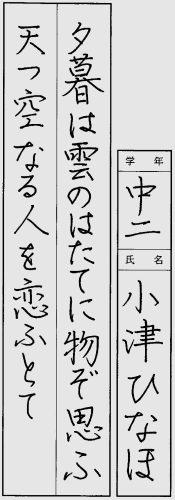 夕暮は雲のはたてに物ぞ思ふ
天つ空なる人を恋ふとて
学年
中二
氏名
小津ひなほ